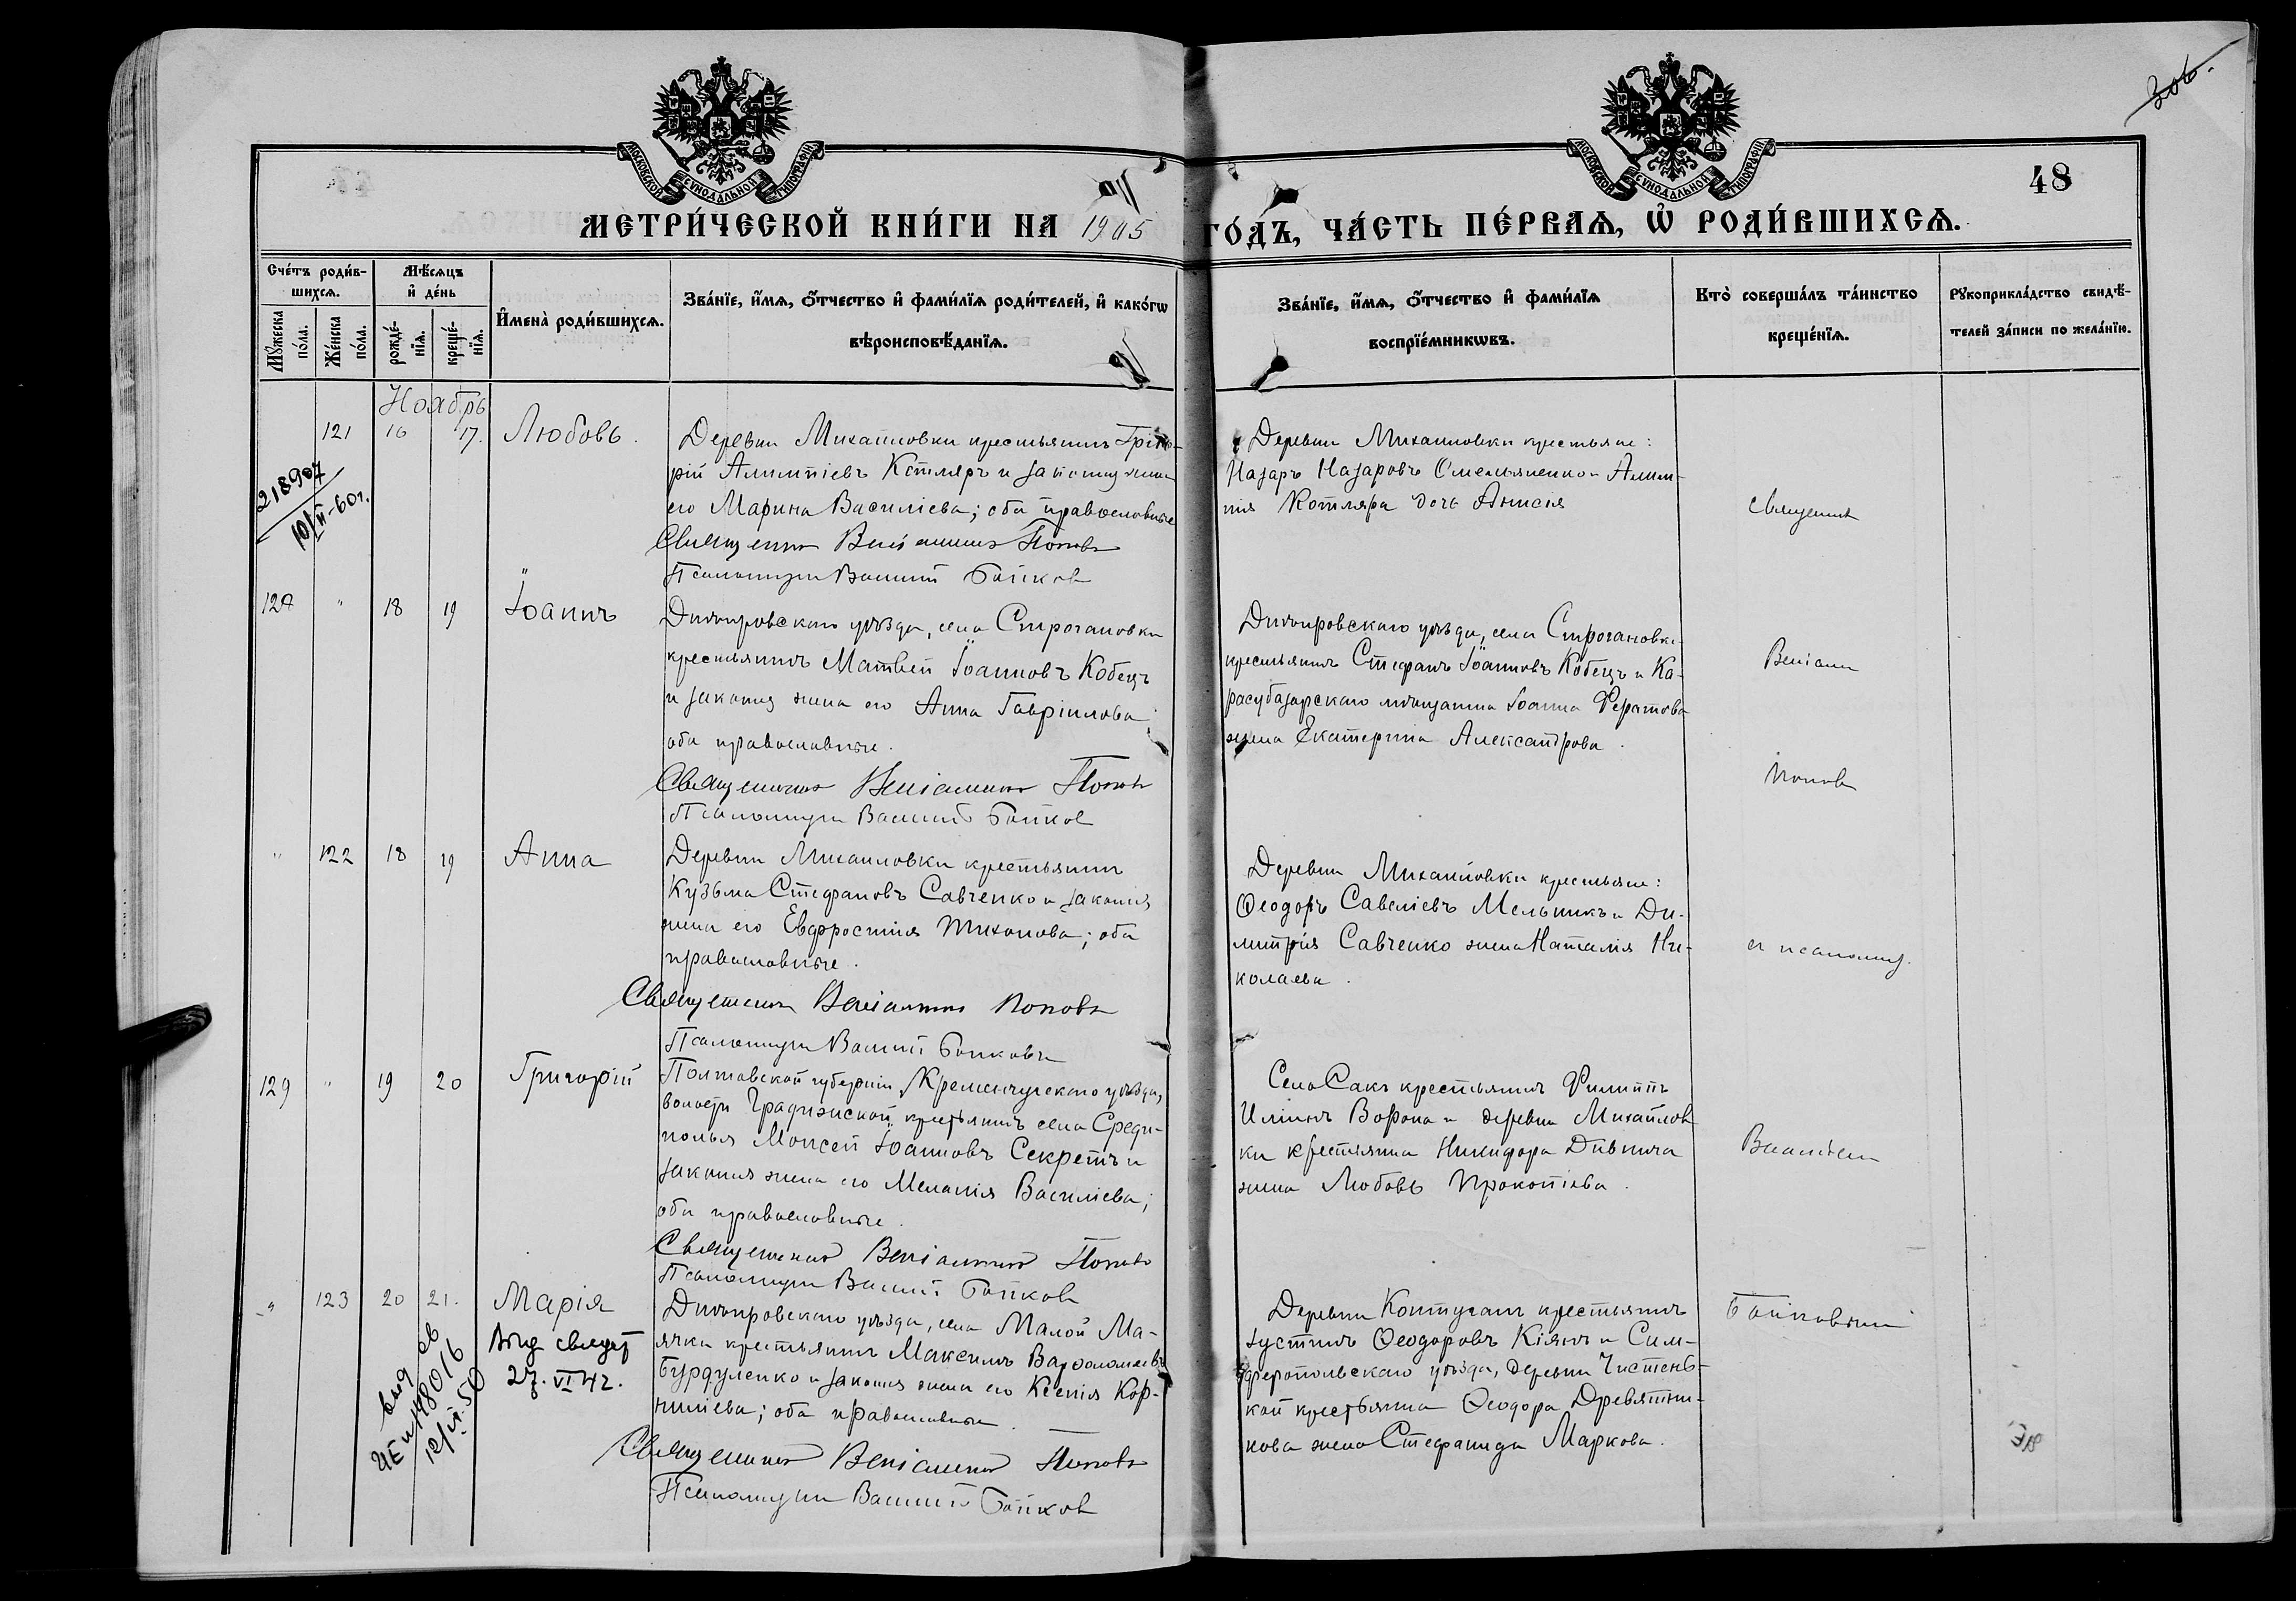 306.
48
МОСКОВСКОЙ СѴНОДАЛЬНОЙ ТИПОГРАФІИ
МОСКОВСКОЙ СѴНОДАЛЬНОЙ ТИПОГРАФІИ
МЕТРИ́ЧЕСКОЙ КНИ́ГИ НА 1905 ГО́ДЪ, ЧА́СТЬ ПЕ́РВАѦ, Ѡ РОДИ́ВШИХСѦ.
Сче́тъ роди́в-
шихсѧ.
Мѣ́сѧцъ
и҆ де́нь
Мꙋ́жеска
по́ла.
Же́нска
по́ла.
рожде́-
нїѧ.
креще́-
нїѧ.
И҆мена̀ роди́вшихсѧ.
Зва́нїе, и҆́мѧ, ѻ҆́тчество и҆ фами́лїѧ роди́телей, и҆ како́гѡ
вѣроисповѣ́данїѧ.
Зва́нїе, и҆́мѧ, ѻ҆́тчество и҆ фами́лїѧ
воспрїе́мникѡвъ.
Кто̀ соверша́лъ та́инство
креще́нїѧ.
Рꙋкоприкла́дство свидѣ́-
телей за́писи по жела́нїю.
Ноябрь
121 16 17. Любовь.
218907
10/II-60г.
Деревни Михайловки крестьянинъ Григо-
рій Алимпіевъ Котляръ и законная жена
его Марина Василіева; оба православные
Священникъ Веніаминъ Поповъ
Псаломщикъ Василій Бойковъ
Деревни Михайловки крестьяне:
Назаръ Назаровъ Омельяненко и Алим-
пія Котляра дочь Анисія
Священникъ
128 " 18 19 Іоаннъ
Днѣпровскаго уѣзда, села Строгановки
крестьянинъ Матвей Іоанновъ Кобецъ
и законная жена его Анна Гавріилова
оба православные.
Священникъ Веніаминъ Поповъ
Псаломщикъ Василій Бойковъ
Днѣпровскаго уѣзда, села Строгановки
крестьянинъ Стефанъ Іоанновъ Кобецъ и Ка-
расубазарскаго мѣщанина Іоанна
жена Екатерина Александрова.
Веніаминъ
Поповъ
" 122 18 19 Анна
Деревни Михайловки крестьянинъ
Кузьма Стефановъ Савченко и законная
жена его Евфросинія Тихонова; оба
православные.
Священникъ Веніаминъ Поповъ
Псаломщикъ Василій Бойковъ
Деревни Михайловки крестьяне:
Ѳеодоръ Савеліевъ Мельникъ и Ди-
митрія Савченко жена Наталія Ни-
колаева.
съ псаломщ.
129 " 19 20 Григорій
Полтавской губерніи, Кременчугскаго уѣзда,
волости Градижской крестьянинъ села Среди-
полья Моисей Іоанновъ Секретъ и
законная жена его Меланія Василіева;
оба православные.
Священникъ Веніаминъ Поповъ
Псаломщикъ Василій Бойковъ
Село Сакъ крестьянинъ Филиппъ
Иліинъ Ворона и деревни Михайлов-
ки крестьянина Никифора Дивнича
жена Любовь Прокопіева.
Василіемъ
" 123 20 21. Марія
Выд свидет
27. VI 42.
выд св
ИЕ №498016
12/VI.50
Днѣпровскаго уѣзда, села Малой Ма-
ячки крестьянинъ Максимъ Варѳоломеевъ
Бурдуленко и законная жена его Ксенія Кор-
ниліева; оба православные.
Священникъ Веніаминъ Поповъ
Псаломщикъ Василій Бойковъ
Деревни Контуганъ крестьянинъ
Іустинъ Ѳеодоровъ Кіянъ и Сим-
феропольскаго уѣзда, деревни Чистень-
кой крестьянина Ѳеодора Древятни-
кова жена Стефанида Маркова.
Бойковымъ